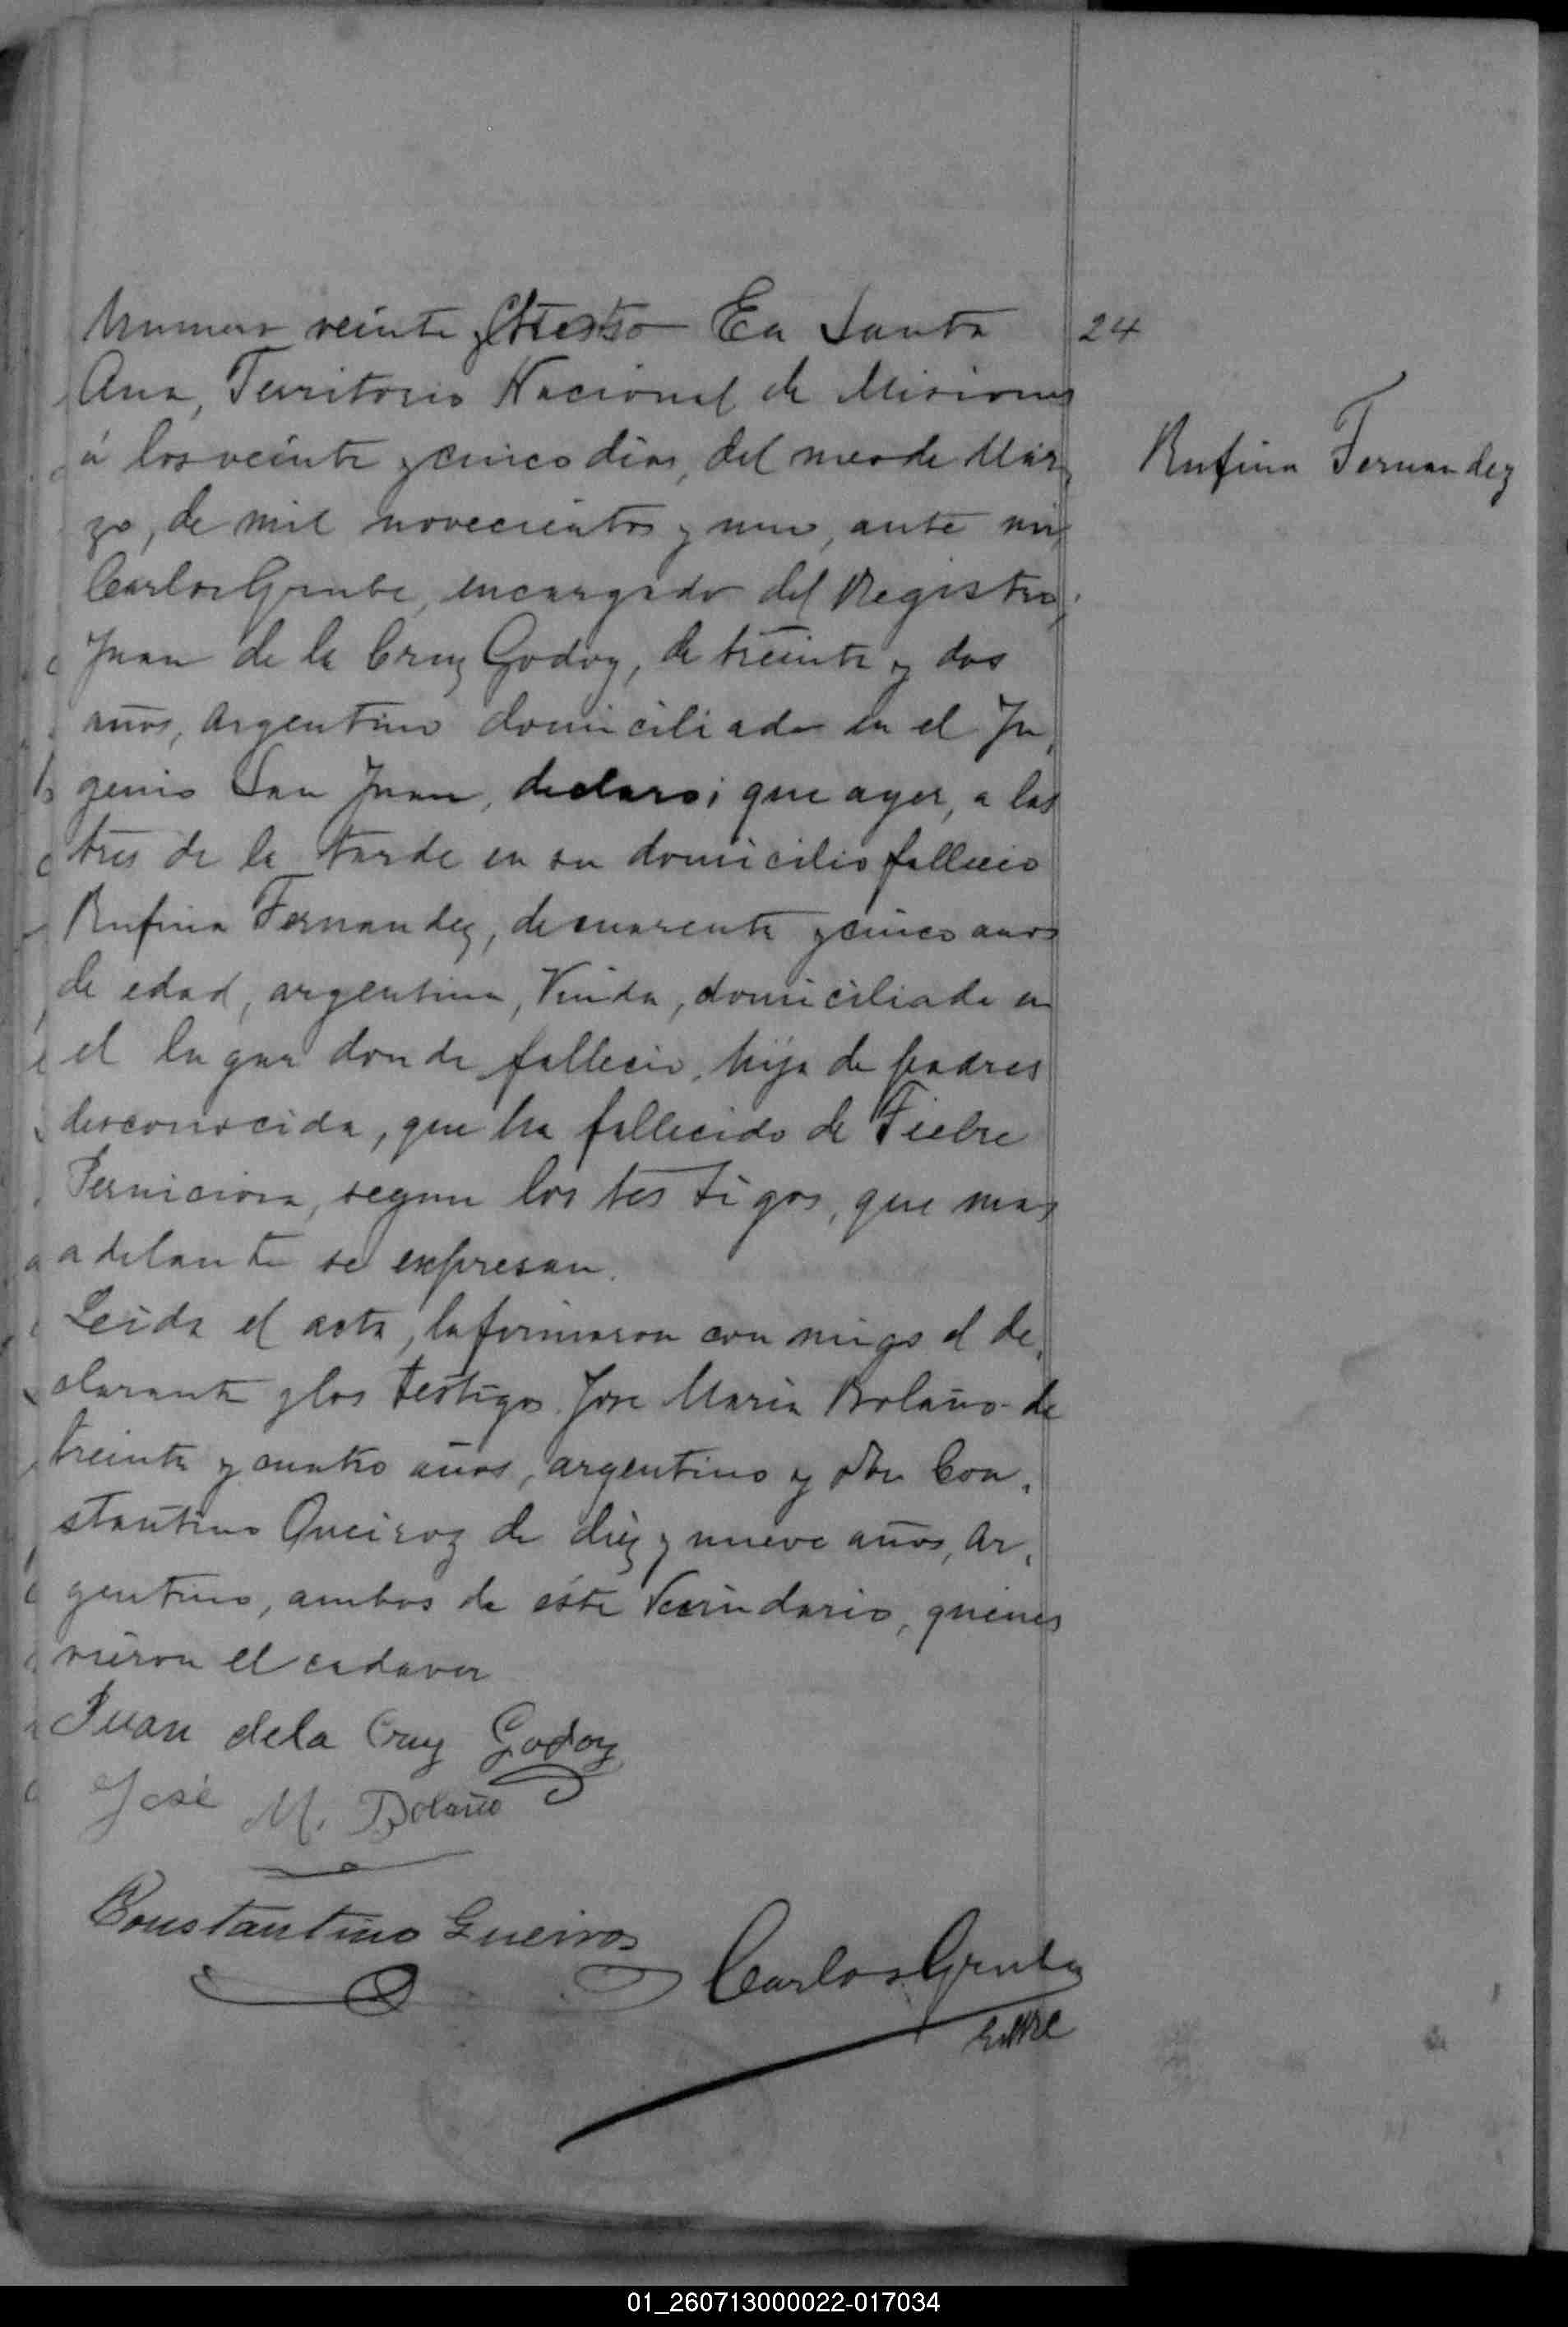 Numero veinte y cuatro En Santa
24
Ana, Territorio Nacional de Misiones
á los veinte y cinco dias, del mes de Mar,
Rufina Fernandez
zo, de mil novecientos y uno, ante mi,
Carlos Grube, encargado del Registro,
Juan de la Cruz Godoy, de treinta y dos
años, argentino domiciliado en el In,
genio San Juan, declaro; que ayer, a las
tres de la tarde en su domicilio fallecio
Rufina Fernandez, de cuarenta y cinco anos
de edad, argentina, Viuda, domiciliada en
el lugar donde fallecio, hija de padres
desconocida, que ha fallecido de Fiebre
Perniciosa, segun los testigos, que mas
adelante se expresan.
Leida el acta, la firmaron con migo el de,
clarante y los testigos Jose Maria Bolaño de
treinta y cuatro años, argentino y don Con,
stantino Queiroz de diez y nueve años, Ar,
gentino, ambos de este Vecindario, quienes
vieron el cadaver
Juan dela Cruz Godoy
José M. Bolaño
Constantino Queiros
Carlos Grube